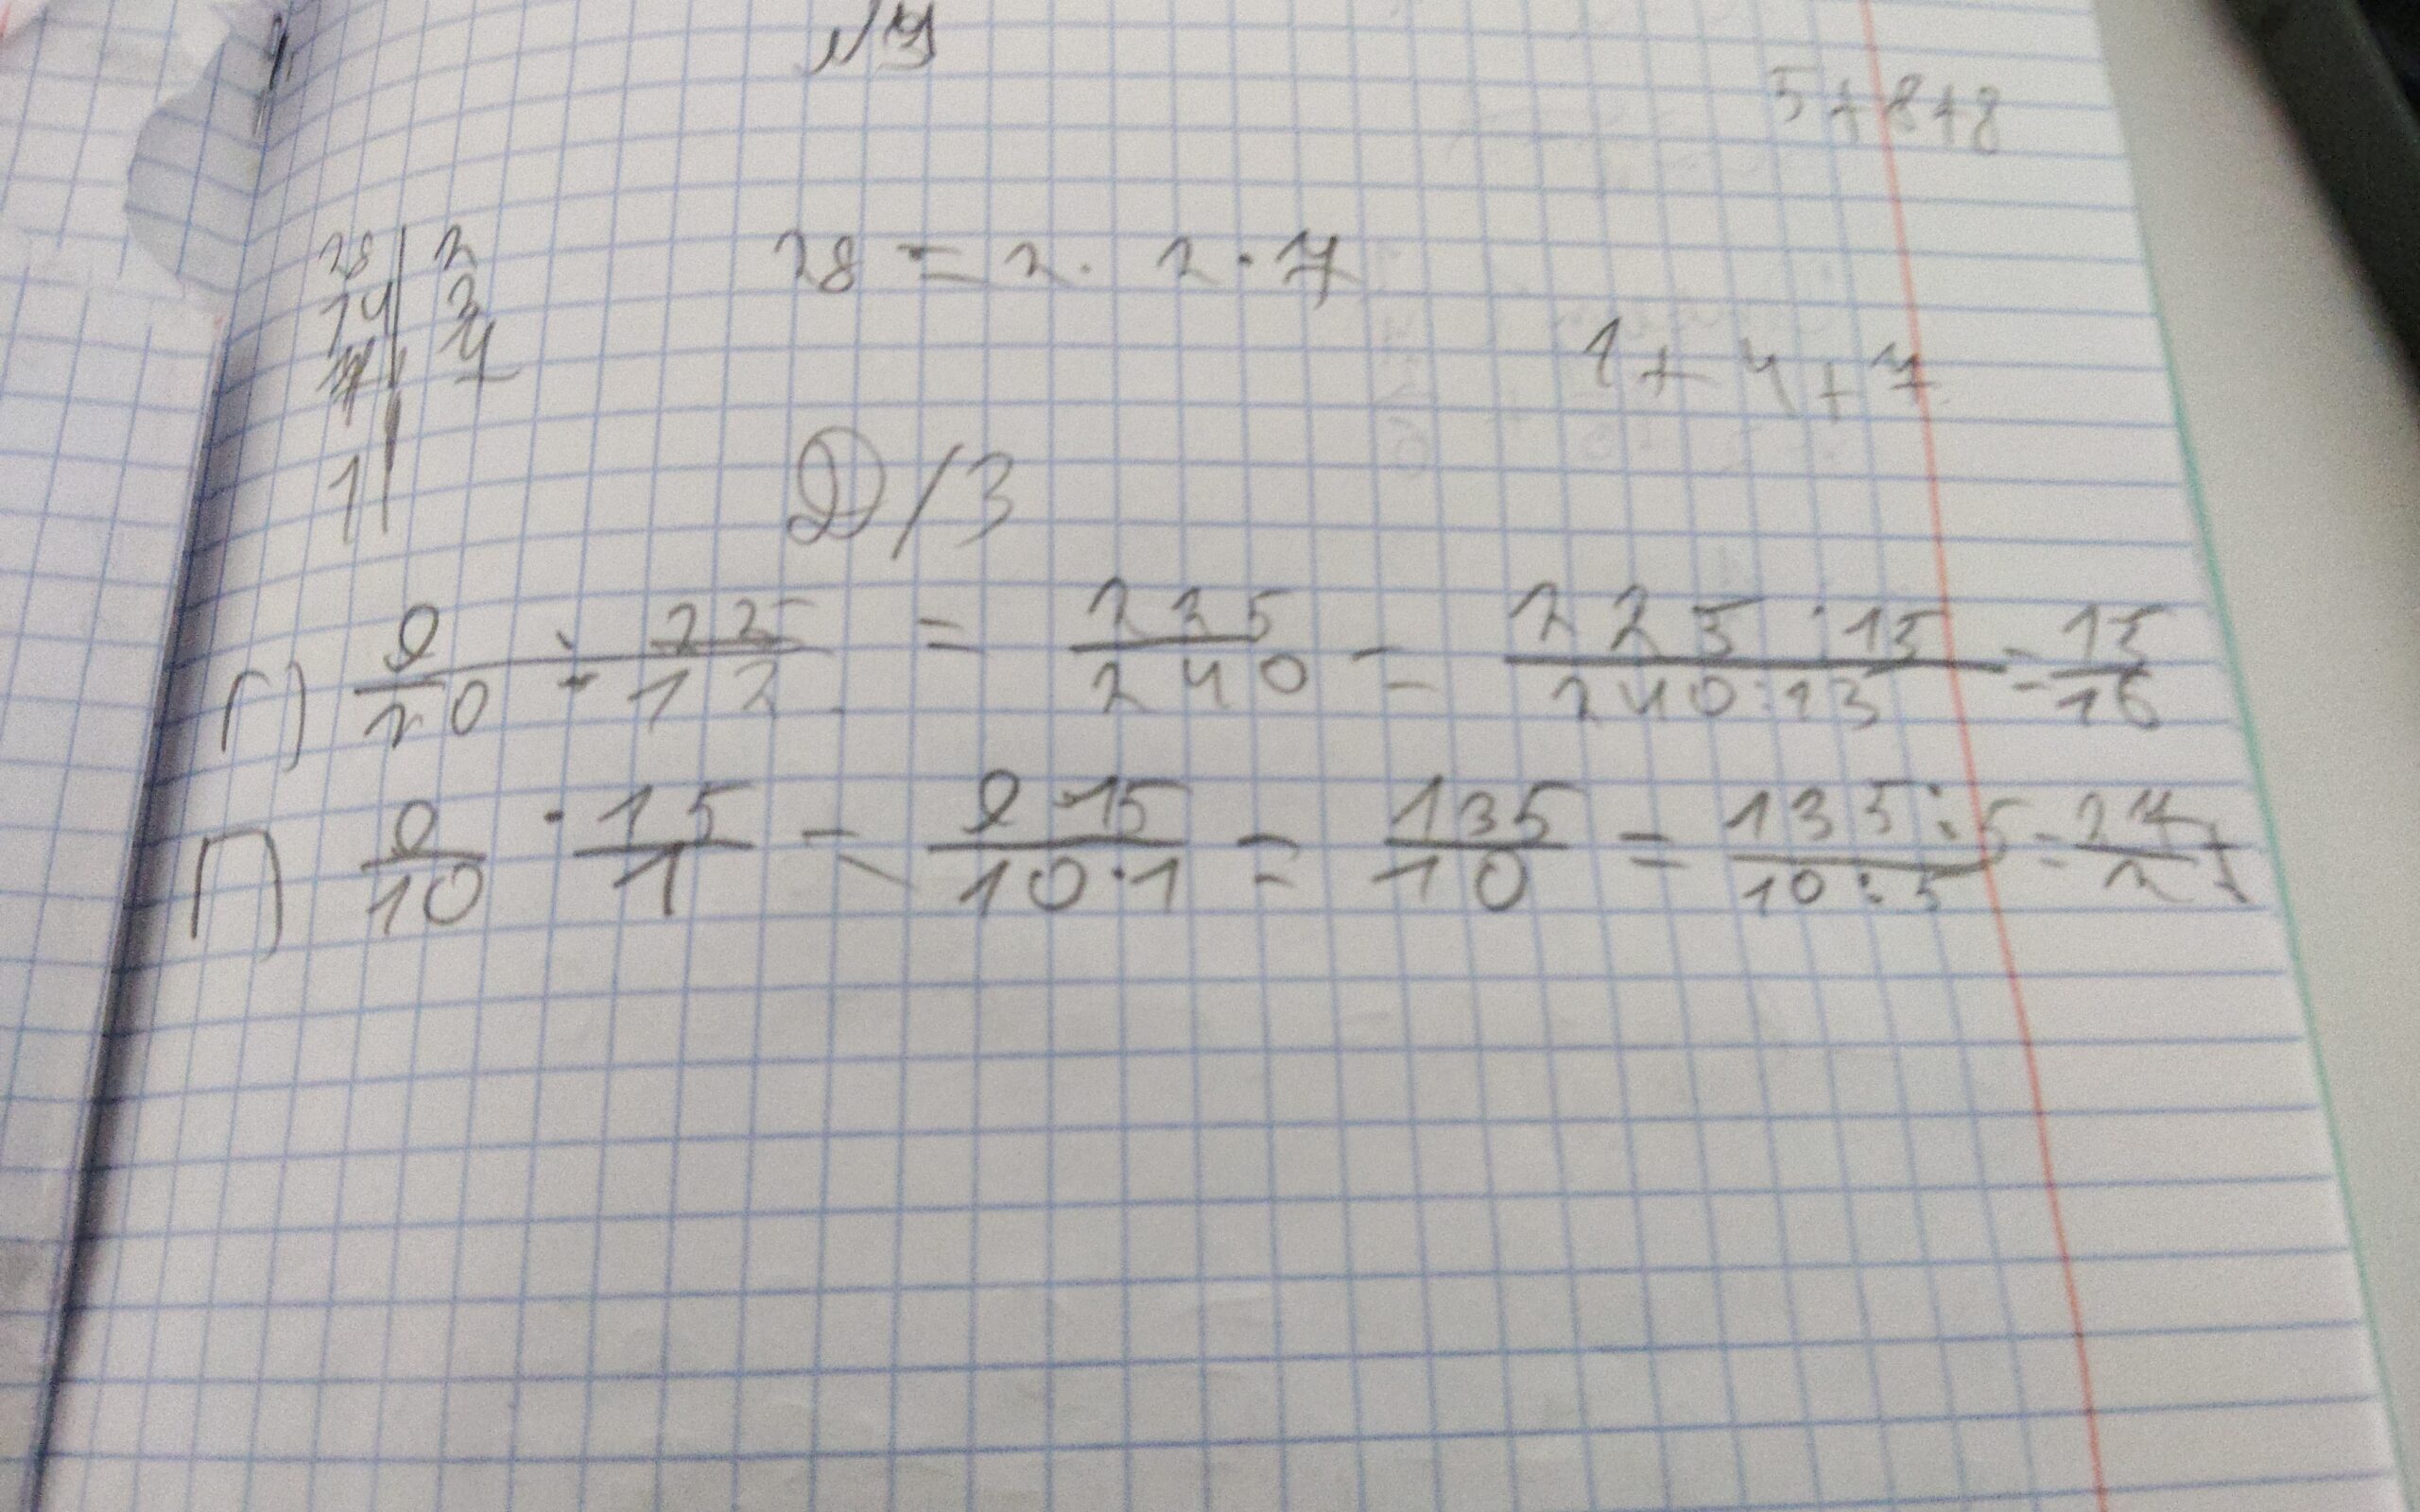 5+8+8
28 | 2
14 | 2
7 | 7
1 |
28 = 2 · 2 · 7
1 + 4 + 7
Д/З
Г) 9/20 : 25/12 = 225/240 = 225:15/240:15 = 15/16
П) 9/10 · 15/1 = 9·15/10·1 = 135/10 = 135:5/10:5 = 27/2